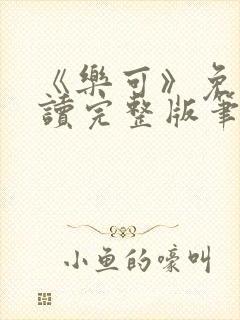 《樂可》免
讀完整版筆
小魚的嚎叫